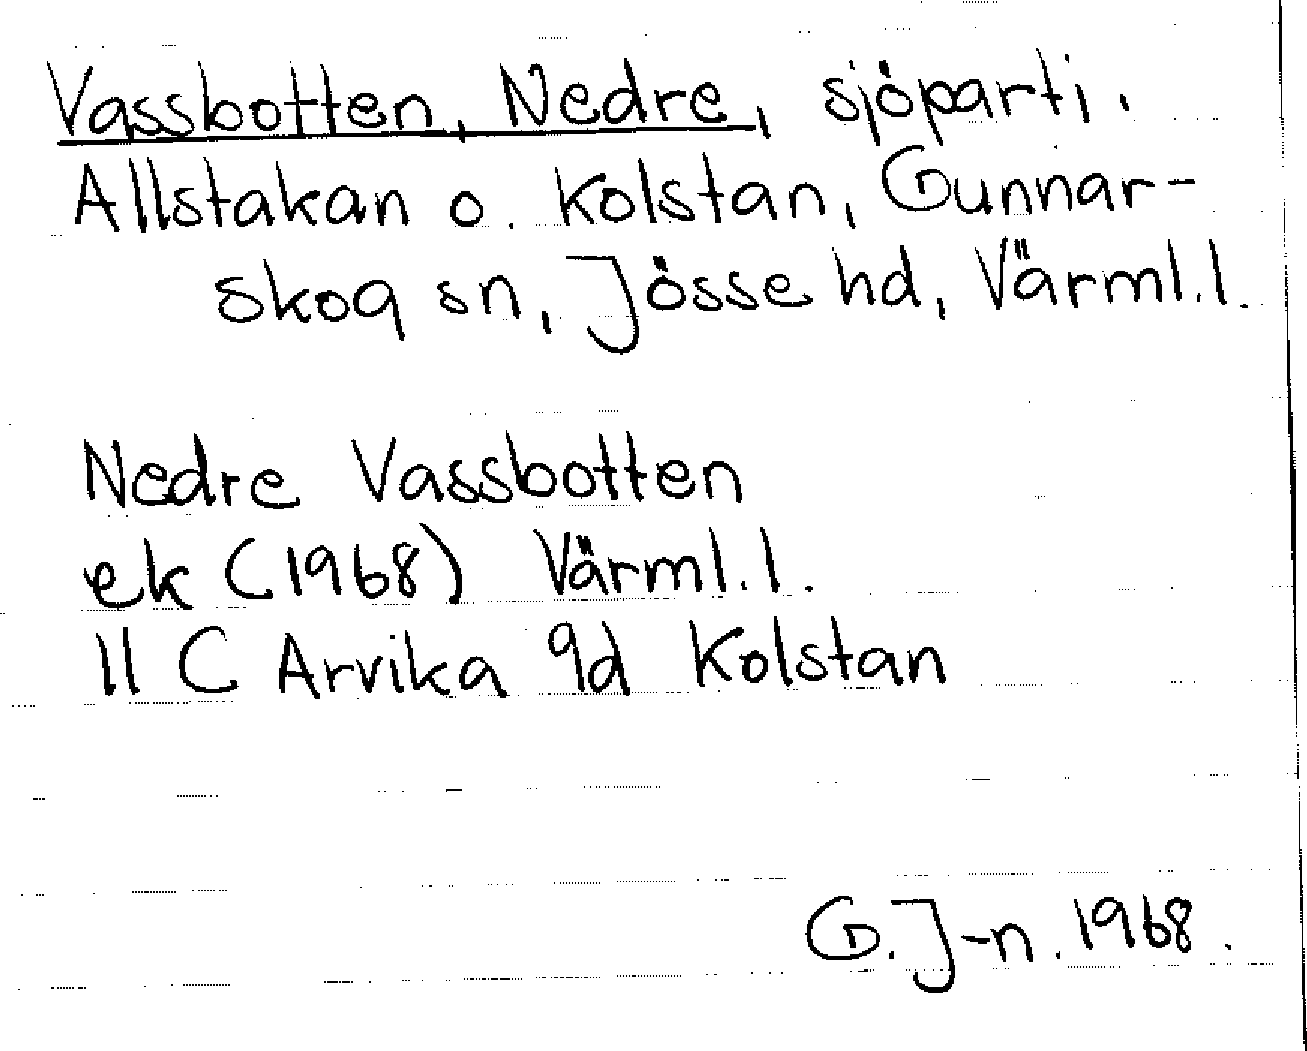 Vassbotten, Nedre, sjöparti.
Allstakan o. Kolstan, Gunnar-
skog sn, Jösse hd, Värml.l.
Nedre Vassbotten
ek (1968) Värml.l.
11 C Arvika 9d Kolstan
G.J-n. 1968.